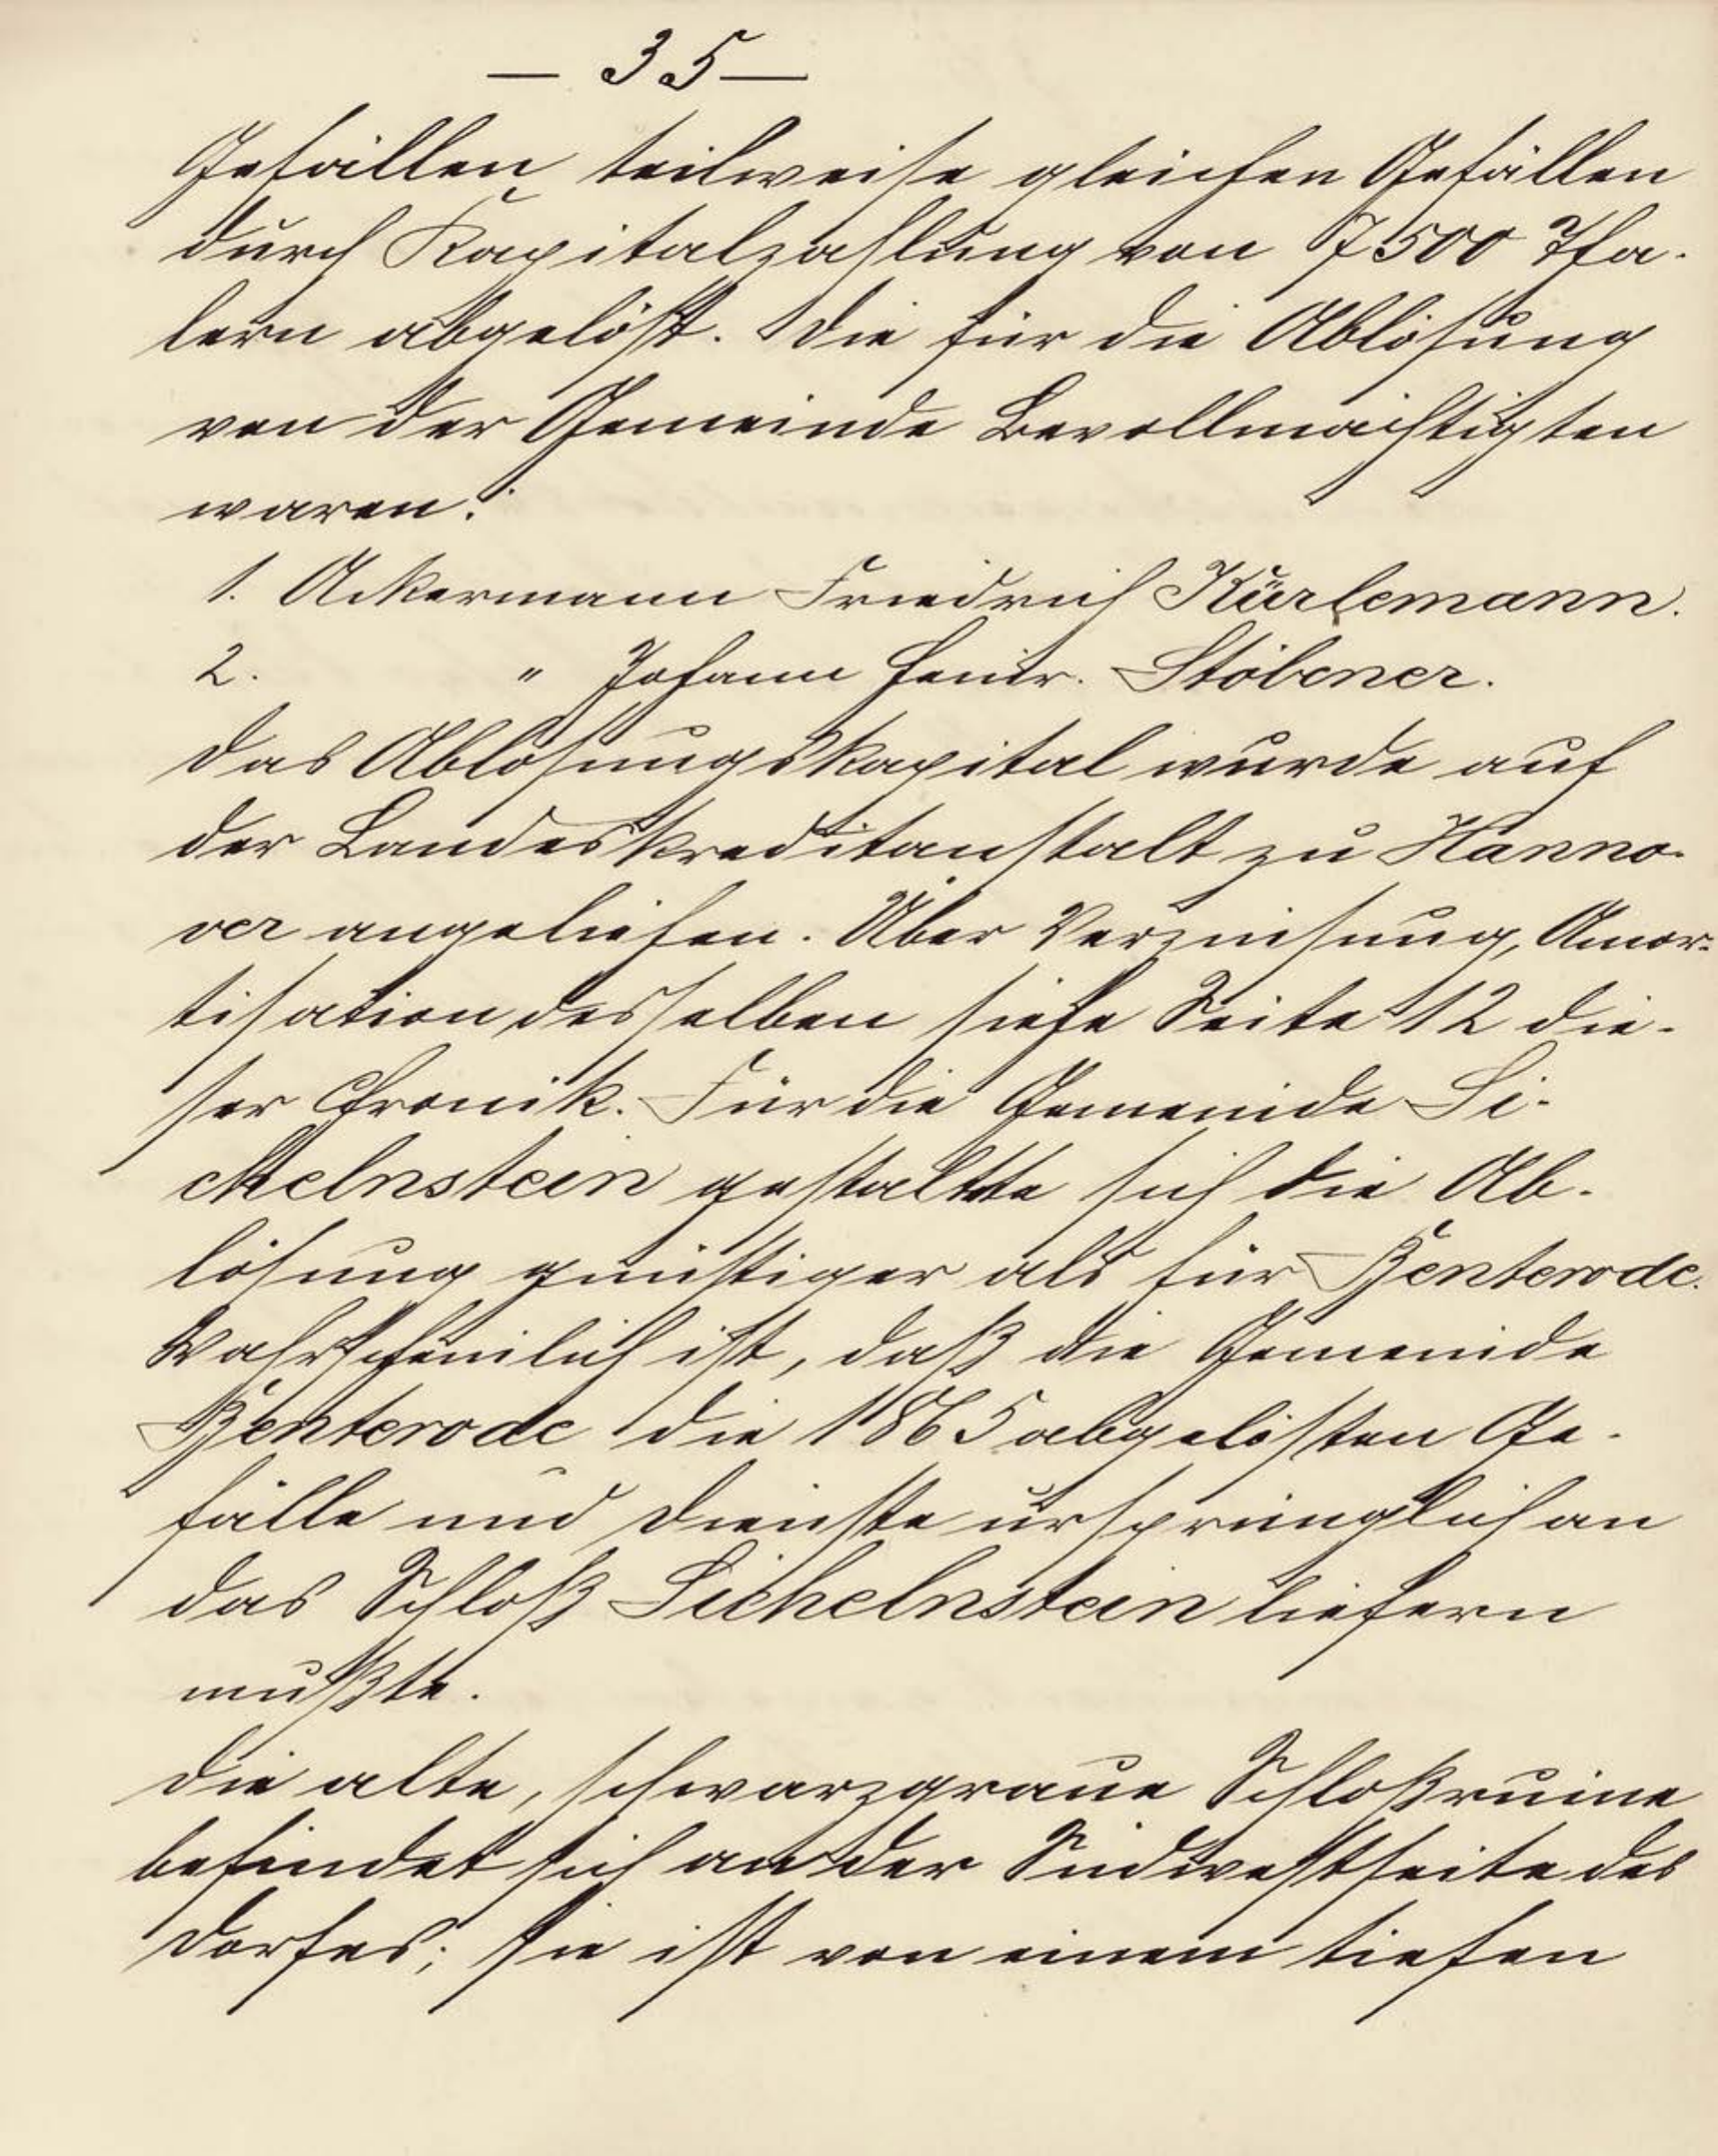 — 35 —
Gefällen teilweise gleichen Gefällen
durch Kapitalzahlung von 7500 Tha-
lern abgelöst. Die für die Ablösung
von der Gemeinde Bevollmächtigten
waren:
1. Ackermann Friedrich Kürlemann.
2. " Johann Heinr. Stöbener.
Das Ablösungskapital wurde auf
der Landeskreditanstalt zu Hanno-
ver angeliehen. Über Verzinsung, Amor-
tisation desselben siehe Seite 12 die-
ser Chronik. Für die Gemeinde Si-
chelnstein gestaltete sich die Ab-
lösung günstiger als für Benterode.
Wahrscheinlich ist, daß die Gemeinde
Benterode die 1865 abgelösten Ge-
fälle und Dienste ursprünglich an
das Schloß Sichelnstein liefern
mußte.
Die alte, schwarzgraue Schloßruine
befindet sich an der Südwestseite des
Dorfes; sie ist von einem tiefen